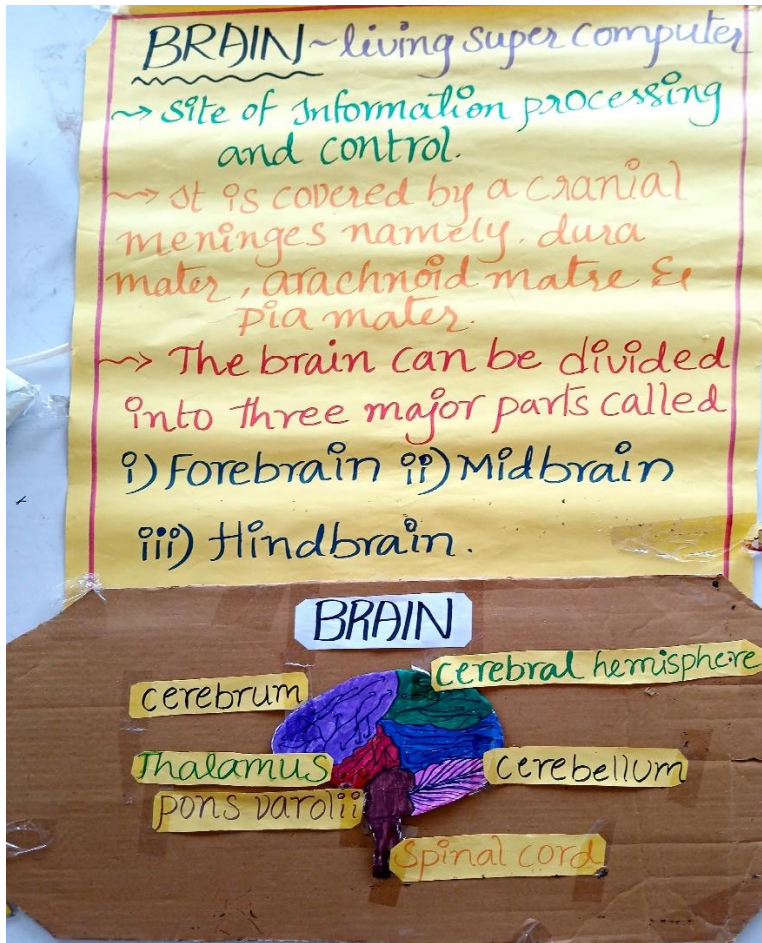 BRAIN ~ living super computer
~> site of Information processing
and control.
~> It is covered by a cranial
meninges namely. dura
mater, arachnoid matre &
pia mater.
~> The brain can be divided
into three major parts called
i) Forebrain ii) Midbrain
iii) Hindbrain.
BRAIN
cerebral hemisphere
cerebrum
Thalamus
cerebellum
pons varolii
Spinal cord